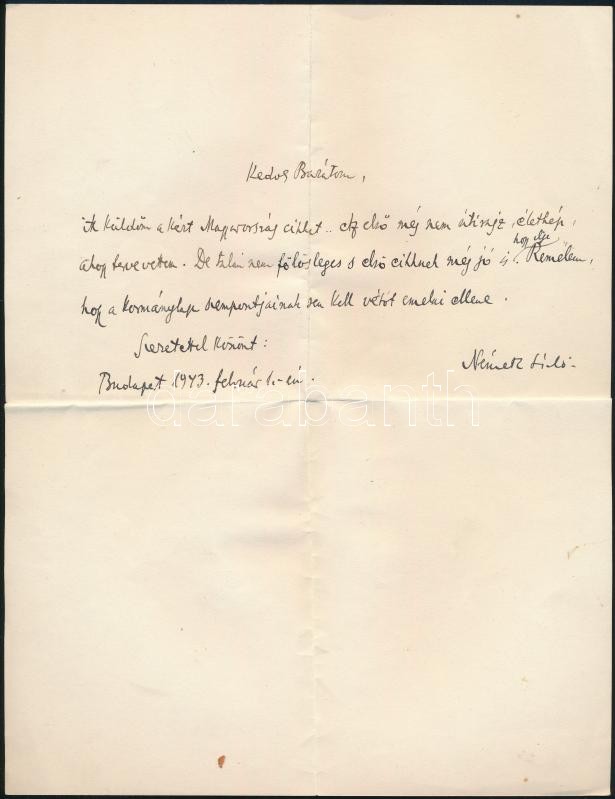 Kedves Barátom,
itt küldöm a kért Magyarország cikket.. Az első még nem útirajz, életkép,
hogy ilyen
ahogy terveztem. De talán nem fölösleges s első cikknek még jó is. Remélem,
hogy a kormánylap szempontjainak sem kell vétót emelni ellene.
Szeretettel köszönt:
Németh László.
Budapest 1943. február 1.-én.
darabanth